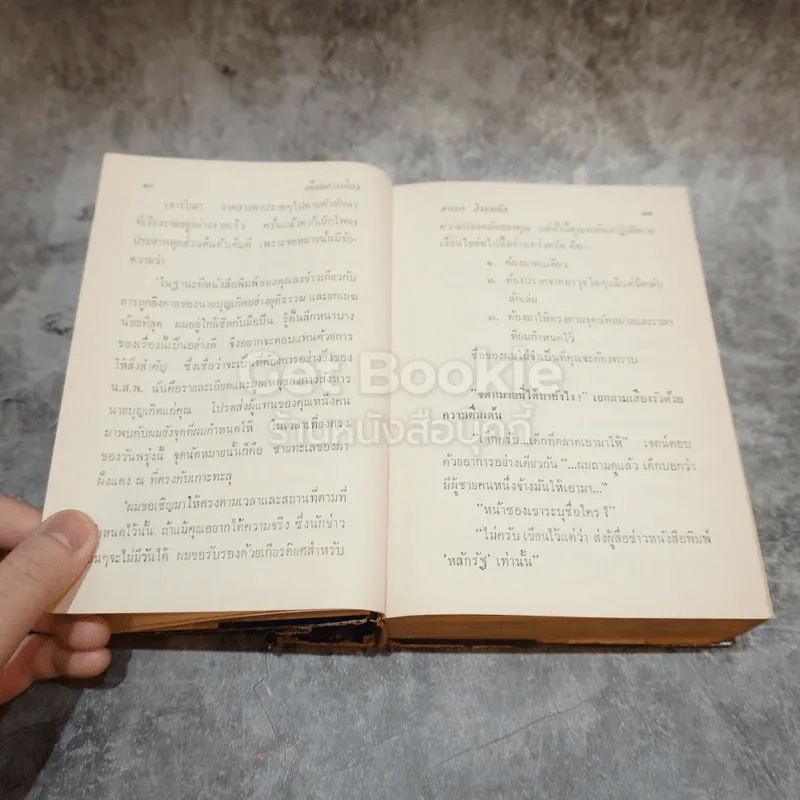 เขารับมา จากลานตาปราดๆไปตามตัวอักษร
ที่เรียงรายอยู่อย่างรวดเร็ว ครั้นแล้วตาก็เบิกโพลง
ประสาททุกส่วนตื่นตัวเต็มที่ เพราะจดหมายนั้นมีข้อ-
ความว่า
'ในฐานะที่หนังสือพิมพ์ของคุณลงข่าวเกี่ยวกับ
การถูกยิงตายของนายบุญเกิดอย่างยุติธรรม และยกเมฆ
น้อยที่สุด ผมอยู่ใกล้ชิดกับมือปืน รู้ตื้นลึกหนาบาง
ของเรื่องนี้เป็นอย่างดี จึงอยากจะตอบแทนด้วยการ
ให้สิ่งสำคัญ ซึ่งเชื่อว่าจะเป็นที่ต้องการอย่างยิ่งของ
น.ส.พ. นั่นคือรายละเอียดและมูลเหตุของการสังหาร
นายบุญเกิดแก่คุณ โปรดส่งผู้แทนของคุณหนึ่งคน
มาพบกับผมยังจุดที่ผมกำหนดให้ ในเวลาเที่ยงตรง
ของวันพรุ่งนี้ จุดนัดหมายนั้นก็คือ ชายทะเลของผา
ผึ้งแดง ณ ที่ตรงกับเกาะทะลุ
'ผมขอเชิญมาให้ตรงตามเวลาและสถานที่ตามที่
กำหนดไว้นั้น ถ้าแม้คุณอยากได้ความจริง ซึ่งนักข่าว
อื่นๆจะไม่มีวันได้ ผมขอรับรองด้วยเกียรติยศสำหรับ
ความปลอดภัยของคุณ แต่ทั้งนี้คุณจะต้องปฏิบัติตาม
เงื่อนไขต่อไปนี้อย่างเคร่งครัด คือ-
๑. ต้องมาคนเดียว
๒. ต้องปราศจากอาวุธใดๆแม้แต่มีดพับ
สักเล่ม
๓. ต้องมาให้ตรงตามจุดนัดหมายและเวลา
ที่ผมกำหนดไว้
ชื่อของผมไม่จำเป็นที่คุณจะต้องทราบ
"จดหมายนี้ได้มายังไง?" เอกถามเสียงรัวด้วย
ความตื่นเต้น
"เด็กครับ...เด็กที่ตลาดเอามาให้" เจตน์ตอบ
ด้วยอาการอย่างเดียวกัน "...ผมถามดูแล้ว เด็กบอกว่า
มีผู้ชายคนหนึ่งจ้างมันให้เอามา..."
"หน้าซองเขาระบุชื่อใคร รึ"
"ไม่ครับ เขียนไว้แต่ว่า ส่งผู้สื่อข่าวหนังสือพิมพ์
'หลักรัฐ' เท่านั้น"
Get Bookie
ร้านหนังสือบุคกี้